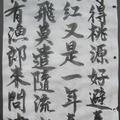 得桃源好避
紅又是一年
飛莫遣隨流
有漁郎來問